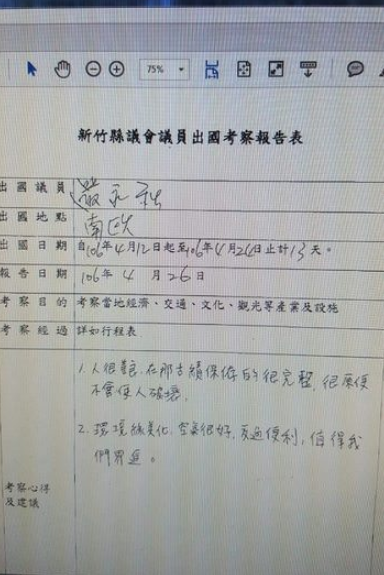 75%
新竹縣議會議員出國考察報告表
出國議員
出國地點 南欧
出國日期 自106年4月12日起至106年4月24日止計13天。
報告日期 106年4月26日
考察目的 考察當地經濟、交通、文化、觀光等產業及設施
考察經過 詳如行程表
1.人很善良,在那古蹟保存的很完整,很原
不會使人破壞.
2.環境綠美化,空氣很好,交通便利,值得我
們學
考察心得
及建議